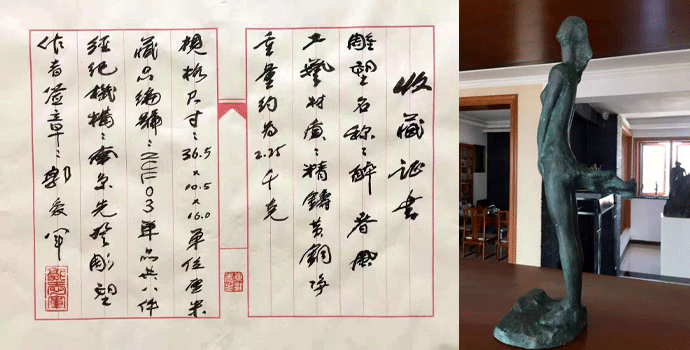 收藏证书
雕塑名称：醉春风
工艺材质：精铸黄铜净
重量约为2.25千克
规格尺寸：36.5×10.5×16.0单位厘米
藏品编号：NEIF03单品共八件
经纪機構：南京先登彫塑
作者签章：郭爱军